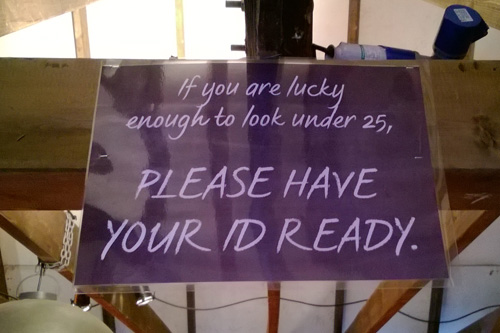 If you are lucky
enough to look under 25,
PLEASE HAVE
YOUR ID READY.